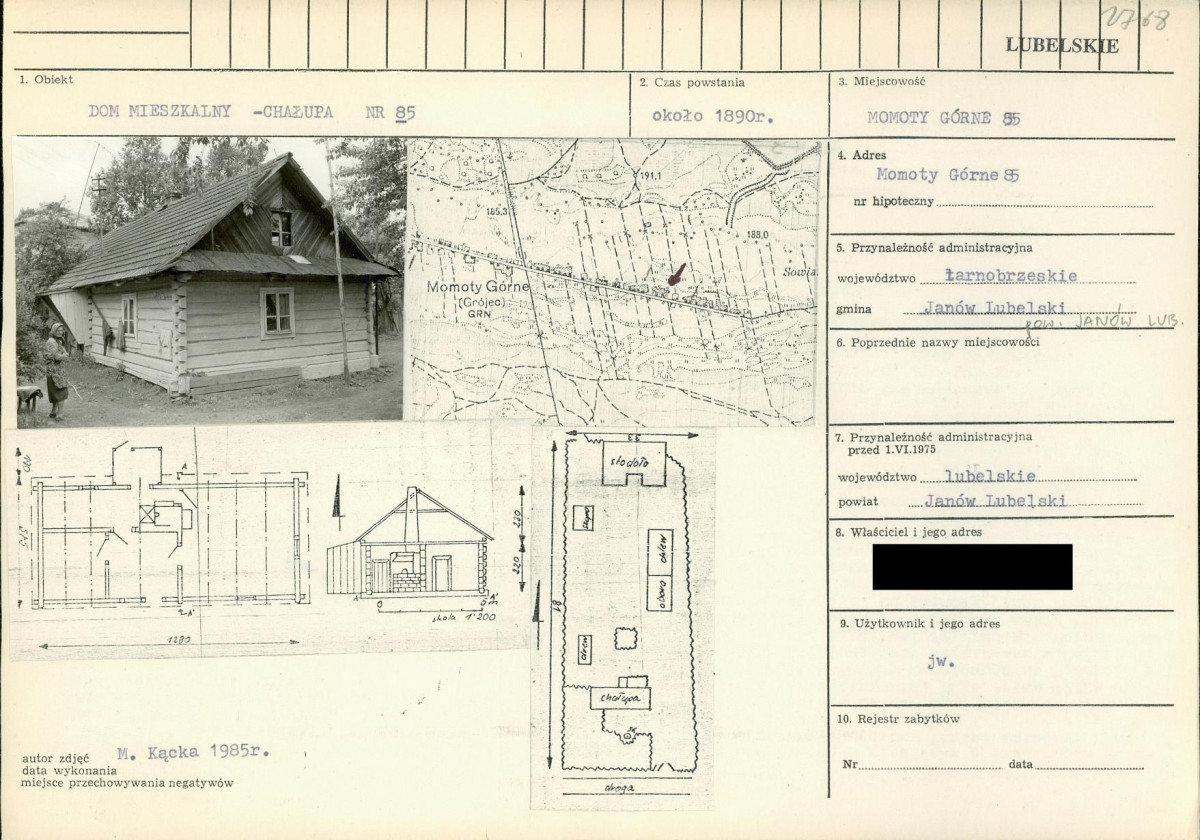 2768
LUBELSKIE
1. Obiekt
DOM MIESZKALNY -CHAŁUPA NR 85
2. Czas powstania
około 1890r.
3. Miejscowość
MOMOTY GÓRNE 85
4. Adres
Momoty Górne 85
nr hipoteczny
5. Przynależność administracyjna
województwo tarnobrzeskie
gmina Janów Lubelski
pow. JANÓW LUB.
6. Poprzednie nazwy miejscowości
7. Przynależność administracyjna
przed 1.VI.1975
województwo lubelskie
powiat Janów Lubelski
8. Właściciel i jego adres
9. Użytkownik i jego adres
jw.
10. Rejestr zabytków
Nr data
191,1
185,3
188,0
Sowia
Momoty Górne
(Grójec)
GRN
190
575
1280
A
A'
A
A'
230
220
0 5 m
skala 1:200
33
81
stodoła
chlew
obora
drew
chałupa
droga
autor zdjęć M. Kącka 1985r.
data wykonania
miejsce przechowywania negatywów